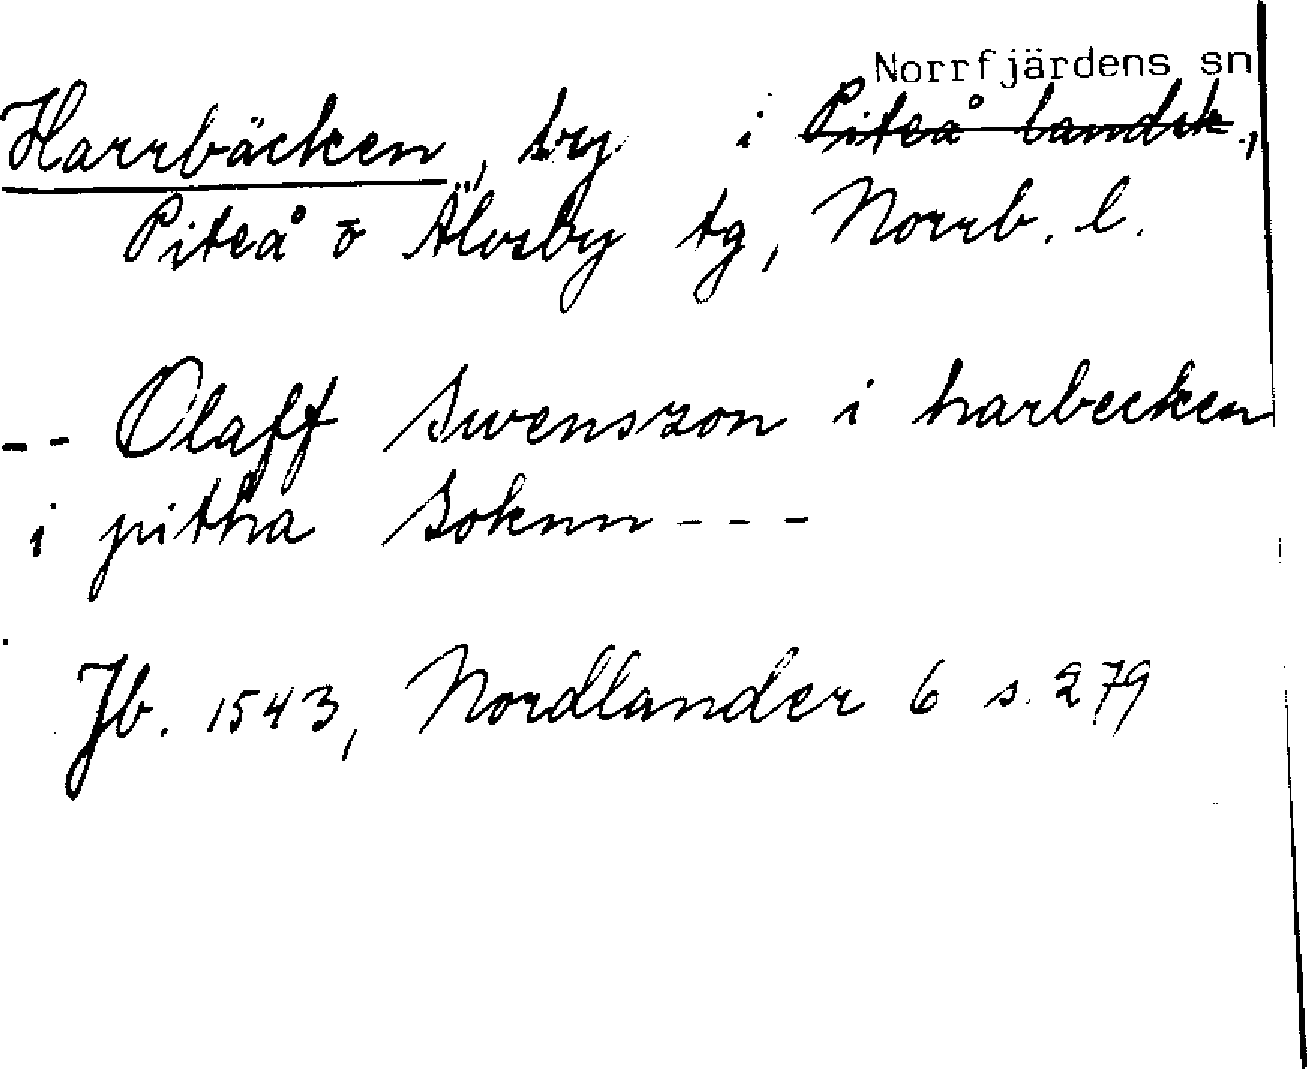 Norrfjärdens sn
Harrbäcken, by i Piteå landsk.,
Piteå o Älvsby tg, Norrb. l.
-- Olaff Swensson i harbecken
i pitha Soknn - - -
Jb. 1543, Nordlander 6 s. 279